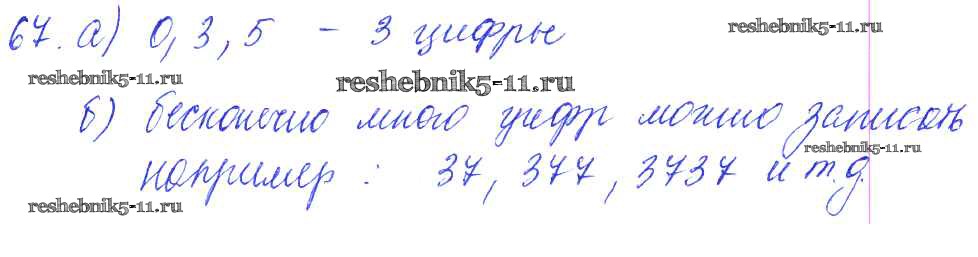 67. а) 0, 3, 5 – 3 цифры
reshebnik5-11.ru
reshebnik5-11.ru
reshebnik5-11.ru
б) бесконечно много цифр можно записать
reshebnik5-11.ru
например: 37, 377, 3737 и т.д.
reshebnik5-11.ru